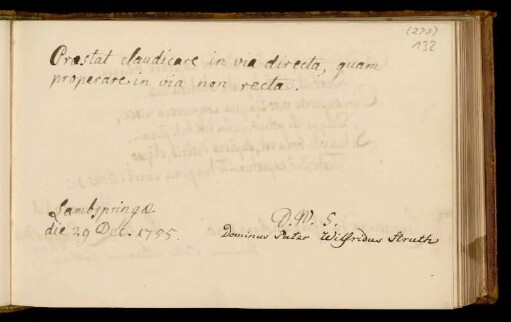 (273)
132
Præstat claudicare in via directa, quam
properare in via non recta.
Lambspringæ
die 29 Dec. 1755.
D. W. S.
Dominus Pater Wilfridus Struth